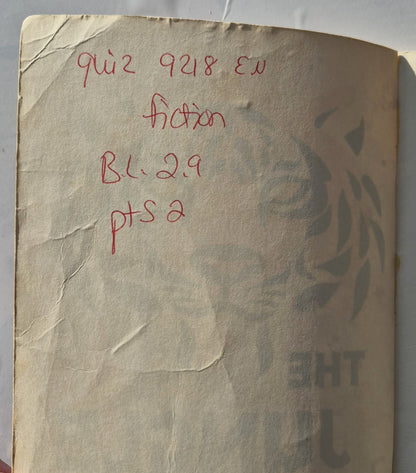 quiz 9218 EN
fiction
B.L. 2.9
pts 2
THE